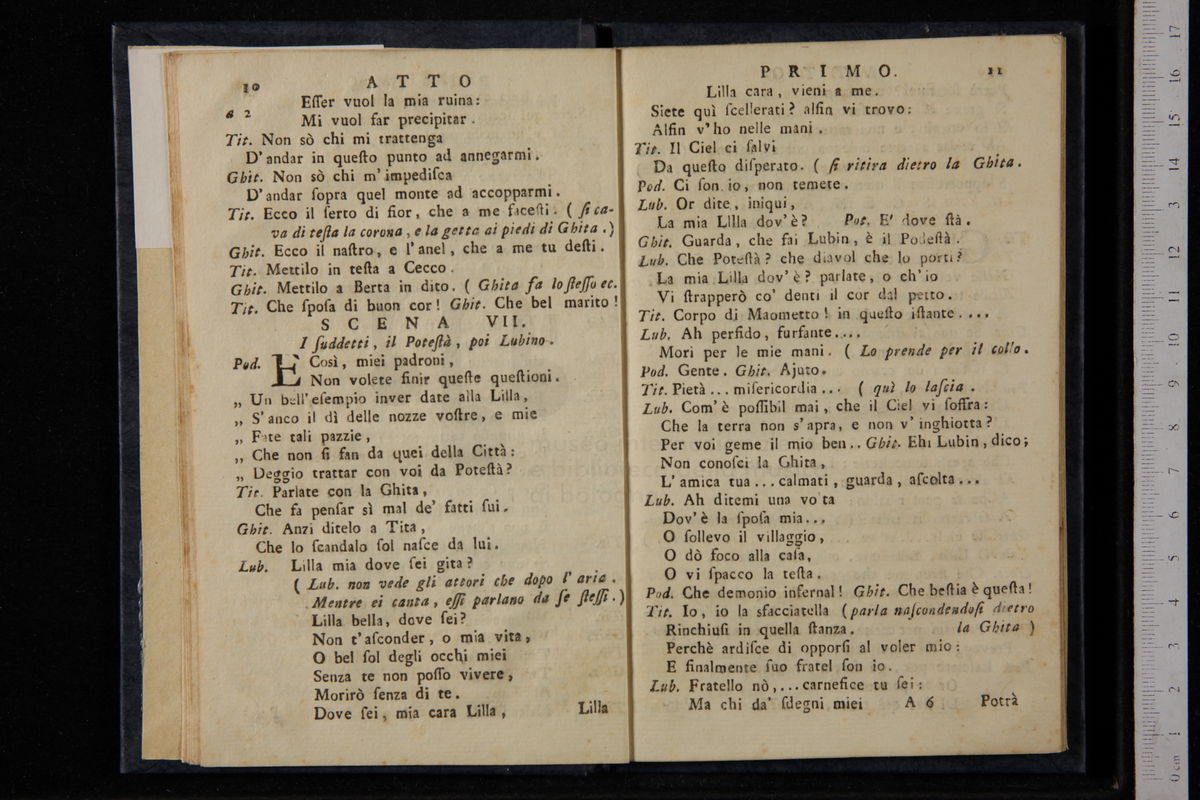 10 ATTO
Eſſer vuol la mia ruina:
a 2 Mi vuol far precipitar.
Tit. Non sò chi mi trattenga
D'andar in queſto punto ad annegarmi.
Ghit. Non sò chi m'impediſca
D'andar ſopra quel monte ad accopparmi.
Tit. Ecco il ſerto di fior, che a me faceſti. ( ſi ca-
va di teſta la corona, e la getta ai piedi di Ghita.)
Ghit. Ecco il naſtro, e l'anel, che a me tu deſti.
Tit. Mettilo in teſta a Cecco.
Ghit. Mettilo a Berta in dito. ( Ghita fa lo ſteſſo ec.
Tit. Che ſpoſa di buon cor! Ghit. Che bel marito!
SCENA VII.
I ſuddetti, il Poteſtà, poi Lubino.
Pod. È Così, miei padroni,
Non volete finir queſte queſtioni.
„ Un bell'eſempio inver date alla Lilla,
„ S'anco il dì delle nozze voſtre, e mie
„ Fate tali pazzie,
„ Che non ſi fan da quei della Città:
„ Deggio trattar con voi da Poteſtà?
Tit. Parlate con la Ghita,
Che fa penſar sì mal de' fatti ſui.
Ghit. Anzi ditelo a Tita,
Che lo ſcandalo ſol naſce da lui.
Lub. Lilla mia dove ſei gita?
( Lub. non vede gli attori che dopo l'aria.
Mentre ei canta, eſſi parlano da ſe ſteſſi.)
Lilla bella, dove ſei?
Non t'aſconder, o mia vita,
O bel ſol degli occhi miei
Senza te non poſſo vivere,
Morirò ſenza di te.
Dove ſei, mia cara Lilla,
Lilla
PRIMO. 11
Lilla cara, vieni a me.
Siete quì ſcellerati? alfin vi trovo:
Alfin v'ho nelle mani.
Tit. Il Ciel ci ſalvi
Da queſto diſperato. ( ſi ritira dietro la Ghita.
Pod. Ci ſon io, non temete.
Lub. Or dite, iniqui,
La mia Lllla dov'è? Pot. E' dove ſtà.
Ghit. Guarda, che fai Lubin, è il Podeſtà.
Lub. Che Poteſtà? che diavol che lo porti?
La mia Lilla dov'è? parlate, o ch'io
Vi ſtrapperò co' denti il cor dal petto.
Tit. Corpo di Maometto! in queſto iſtante....
Lub. Ah perfido, furfante....
Mori per le mie mani. ( Lo prende per il collo.
Pod. Gente. Ghit. Ajuto.
Tit. Pietà... miſericordia... ( quì lo laſcia.
Lub. Com'è poſſibil mai, che il Ciel vi ſoffra:
Che la terra non s'apra, e non v'inghiotta?
Per voi geme il mio ben.. Ghit. Ehi Lubin, dico;
Non conoſci la Ghita,
L'amica tua... calmati, guarda, aſcolta...
Lub. Ah ditemi una vo ta
Dov'è la ſpoſa mia...
O ſollevo il villaggio,
O dò foco alla caſa,
O vi ſpacco la teſta.
Pod. Che demonio infernal! Ghit. Che beſtia è queſta!
Tit. Io, io la sfacciatella (parla naſcondendoſi dietro
Rinchiuſi in quella ſtanza. la Ghita )
Perchè ardiſce di opporſi al voler mio:
E finalmente ſuo fratel ſon io.
Lub. Fratello nò,... carnefice tu ſei:
Ma chi da' ſdegni miei A 6 Potrà